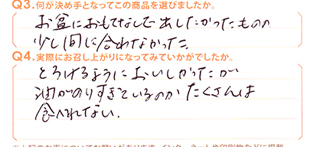 Q3.何が決め手となってこの商品を選びましたか。
お盆におもてなしで出したかったものの
少し間に合わなかった。
Q4.実際にお召し上がりになってみていかがでしたか。
とろけるようにおいしかったが
油がのりすぎているのかたくさんは
食べれない。